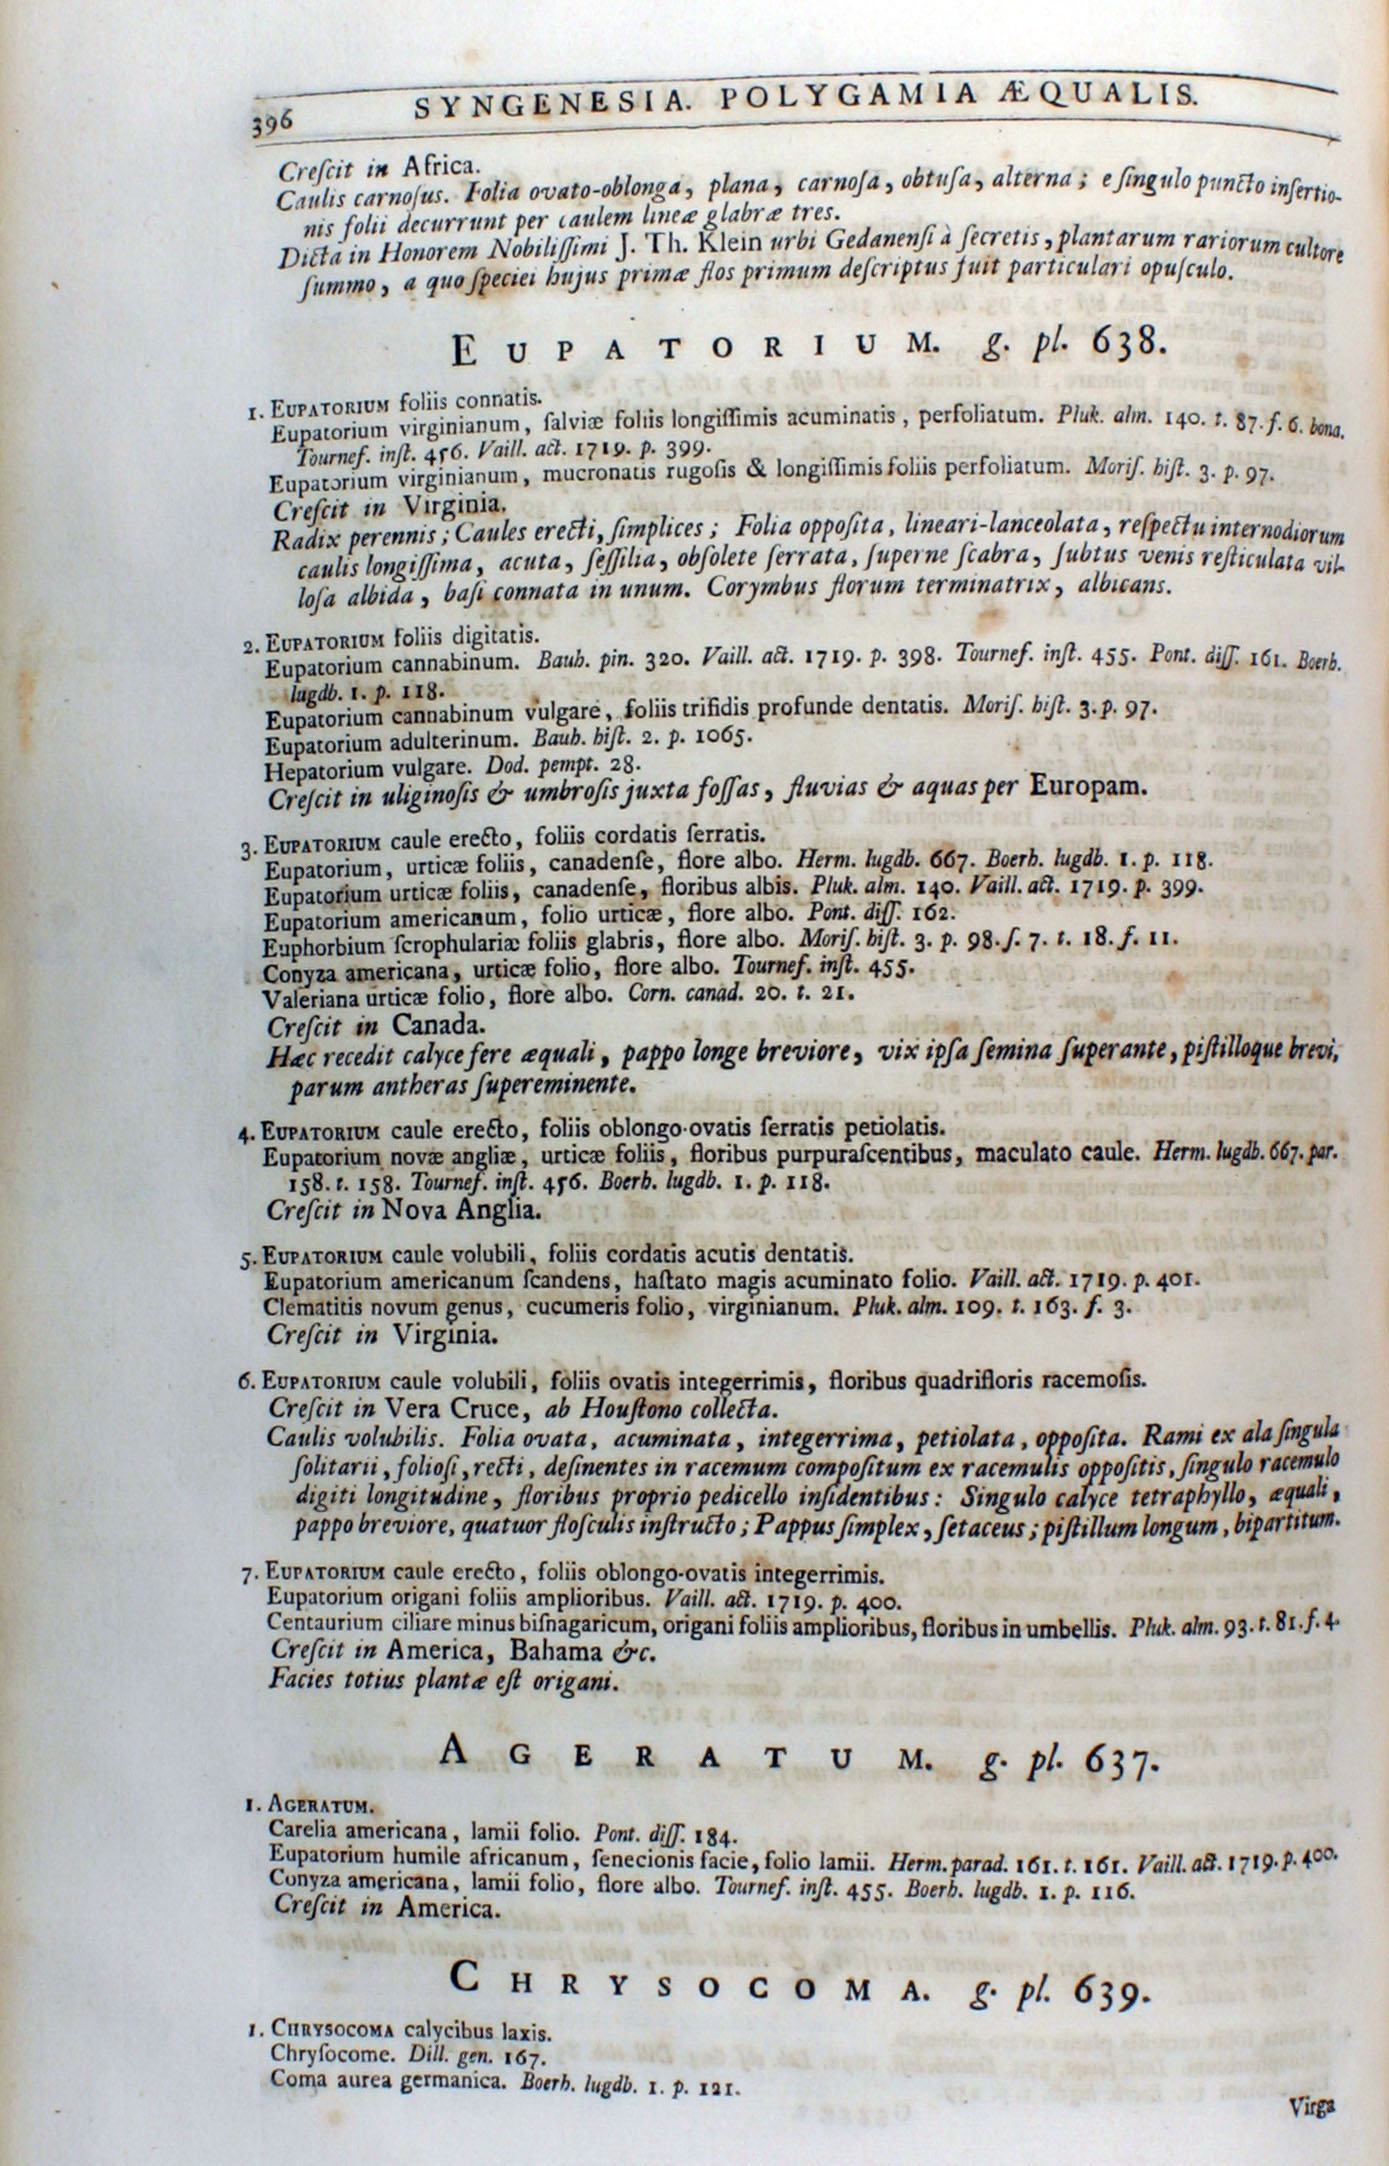 396 SYNGENESIA. POLYGAMIA ÆQUALIS.
Creſcit in Africa.
Caulis carnoſus. Folia ovato-oblonga, plana, carnoſa, obtuſa, alterna; e ſingulo puncto inſertio-
nis folii decurrunt per caulem lineæ glabræ tres.
Dicta in Honorem Nobiliſſimi J. Th. Klein urbi Gedanenſi à ſecretis, plantarum rariorum cultore
ſummo, a quo ſpeciei hujus primæ flos primum deſcriptus fuit particulari opuſculo.
EUPATORIUM. g. pl. 638.
1. EUPATORIUM foliis connatis.
Eupatorium virginianum, ſalviæ foliis longiſſimis acuminatis, perfoliatum. Pluk. alm. 140. t. 87. f. 6. bona.
Tournef. inſt. 456. Vaill. act. 1719. p. 399.
Eupatorium virginianum, mucronatis rugoſis & longiſſimis foliis perfoliatum. Moriſ. hiſt. 3. p. 97.
Creſcit in Virginia.
Radix perennis; Caules erecti, ſimplices; Folia oppoſita, lineari-lanceolata, reſpectu internodiorum
caulis longiſſima, acuta, ſeſſilia, obſolete ſerrata, ſuperne ſcabra, ſubtus venis reſticulata vil-
loſa albida, baſi connata in unum. Corymbus florum terminatrix, albicans.
2. EUPATORIUM foliis digitatis.
Eupatorium cannabinum. Bauh. pin. 320. Vaill. act. 1719. p. 398. Tournef. inſt. 455. Pont. diſſ. 161. Boerh.
lugdb. 1. p. 118.
Eupatorium cannabinum vulgare, foliis trifidis profunde dentatis. Moriſ. hiſt. 3. p. 97.
Eupatorium adulterinum. Bauh. hiſt. 2. p. 1065.
Hepatorium vulgare. Dod. pempt. 28.
Creſcit in uliginoſis & umbroſis juxta foſſas, fluvias & aquas per Europam.
3. EUPATORIUM caule erecto, foliis cordatis ſerratis.
Eupatorium, urticæ foliis, canadenſe, flore albo. Herm. lugdb. 667. Boerh. lugdb. 1. p. 118.
Eupatorium urticæ foliis, canadenſe, floribus albis. Pluk. alm. 140. Vaill. act. 1719. p. 399.
Eupatorium americanum, folio urticæ, flore albo. Pont. diſſ. 162.
Euphorbium ſcrophulariæ foliis glabris, flore albo. Moriſ. hiſt. 3. p. 98. ſ. 7. t. 18. f. 11.
Conyza americana, urticæ folio, flore albo. Tournef. inſt. 455.
Valeriana urticæ folio, flore albo. Corn. canad. 20. t. 21.
Creſcit in Canada.
Hæc recedit calyce fere æquali, pappo longe breviore, vix ipſa ſemina ſuperante, piſtilloque brevi,
parum antheras ſupereminente.
4. EUPATORIUM caule erecto, foliis oblongo-ovatis ſerratis petiolatis.
Eupatorium novæ angliæ, urticæ foliis, floribus purpuraſcentibus, maculato caule. Herm. lugdb. 667. par.
158. t. 158. Tournef. inſt. 456. Boerh. lugdb. 1. p. 118.
Creſcit in Nova Anglia.
5. EUPATORIUM caule volubili, foliis cordatis acutis dentatis.
Eupatorium americanum ſcandens, haſtato magis acuminato folio. Vaill. act. 1719. p. 401.
Clematitis novum genus, cucumeris folio, virginianum. Pluk. alm. 109. t. 163. f. 3.
Creſcit in Virginia.
6. EUPATORIUM caule volubili, foliis ovatis integerrimis, floribus quadrifloris racemoſis.
Creſcit in Vera Cruce, ab Houſtono collecta.
Caulis volubilis. Folia ovata, acuminata, integerrima, petiolata, oppoſita. Rami ex ala ſingula
ſolitarii, folioſi, recti, deſinentes in racemum compoſitum ex racemulis oppoſitis, ſingulo racemulo
digiti longitudine, floribus proprio pedicello inſidentibus: Singulo calyce tetraphyllo, æquali,
pappo breviore, quatuor floſculis inſtructo; Pappus ſimplex, ſetaceus; piſtillum longum, bipartitum.
7. EUPATORIUM caule erecto, foliis oblongo-ovatis integerrimis.
Eupatorium origani foliis amplioribus. Vaill. act. 1719. p. 400.
Centaurium ciliare minus biſnagaricum, origani foliis amplioribus, floribus in umbellis. Pluk. alm. 93. t. 81. f. 4.
Creſcit in America, Bahama &c.
Facies totius plantæ eſt origani.
AGERATUM. g. pl. 637.
1. AGERATUM.
Carelia americana, lamii folio. Pont. diſſ. 184.
Eupatorium humile africanum, ſenecionis facie, folio lamii. Herm. parad. 161. t. 161. Vaill. act. 1719. p. 400.
Conyza americana, lamii folio, flore albo. Tournef. inſt. 455. Boerh. lugdb. 1. p. 116.
Creſcit in America.
CHRYSOCOMA. g. pl. 639.
1. CHRYSOCOMA calycibus laxis.
Chryſocome. Dill. gen. 167.
Coma aurea germanica. Boerh. lugdb. 1. p. 121.
Virga